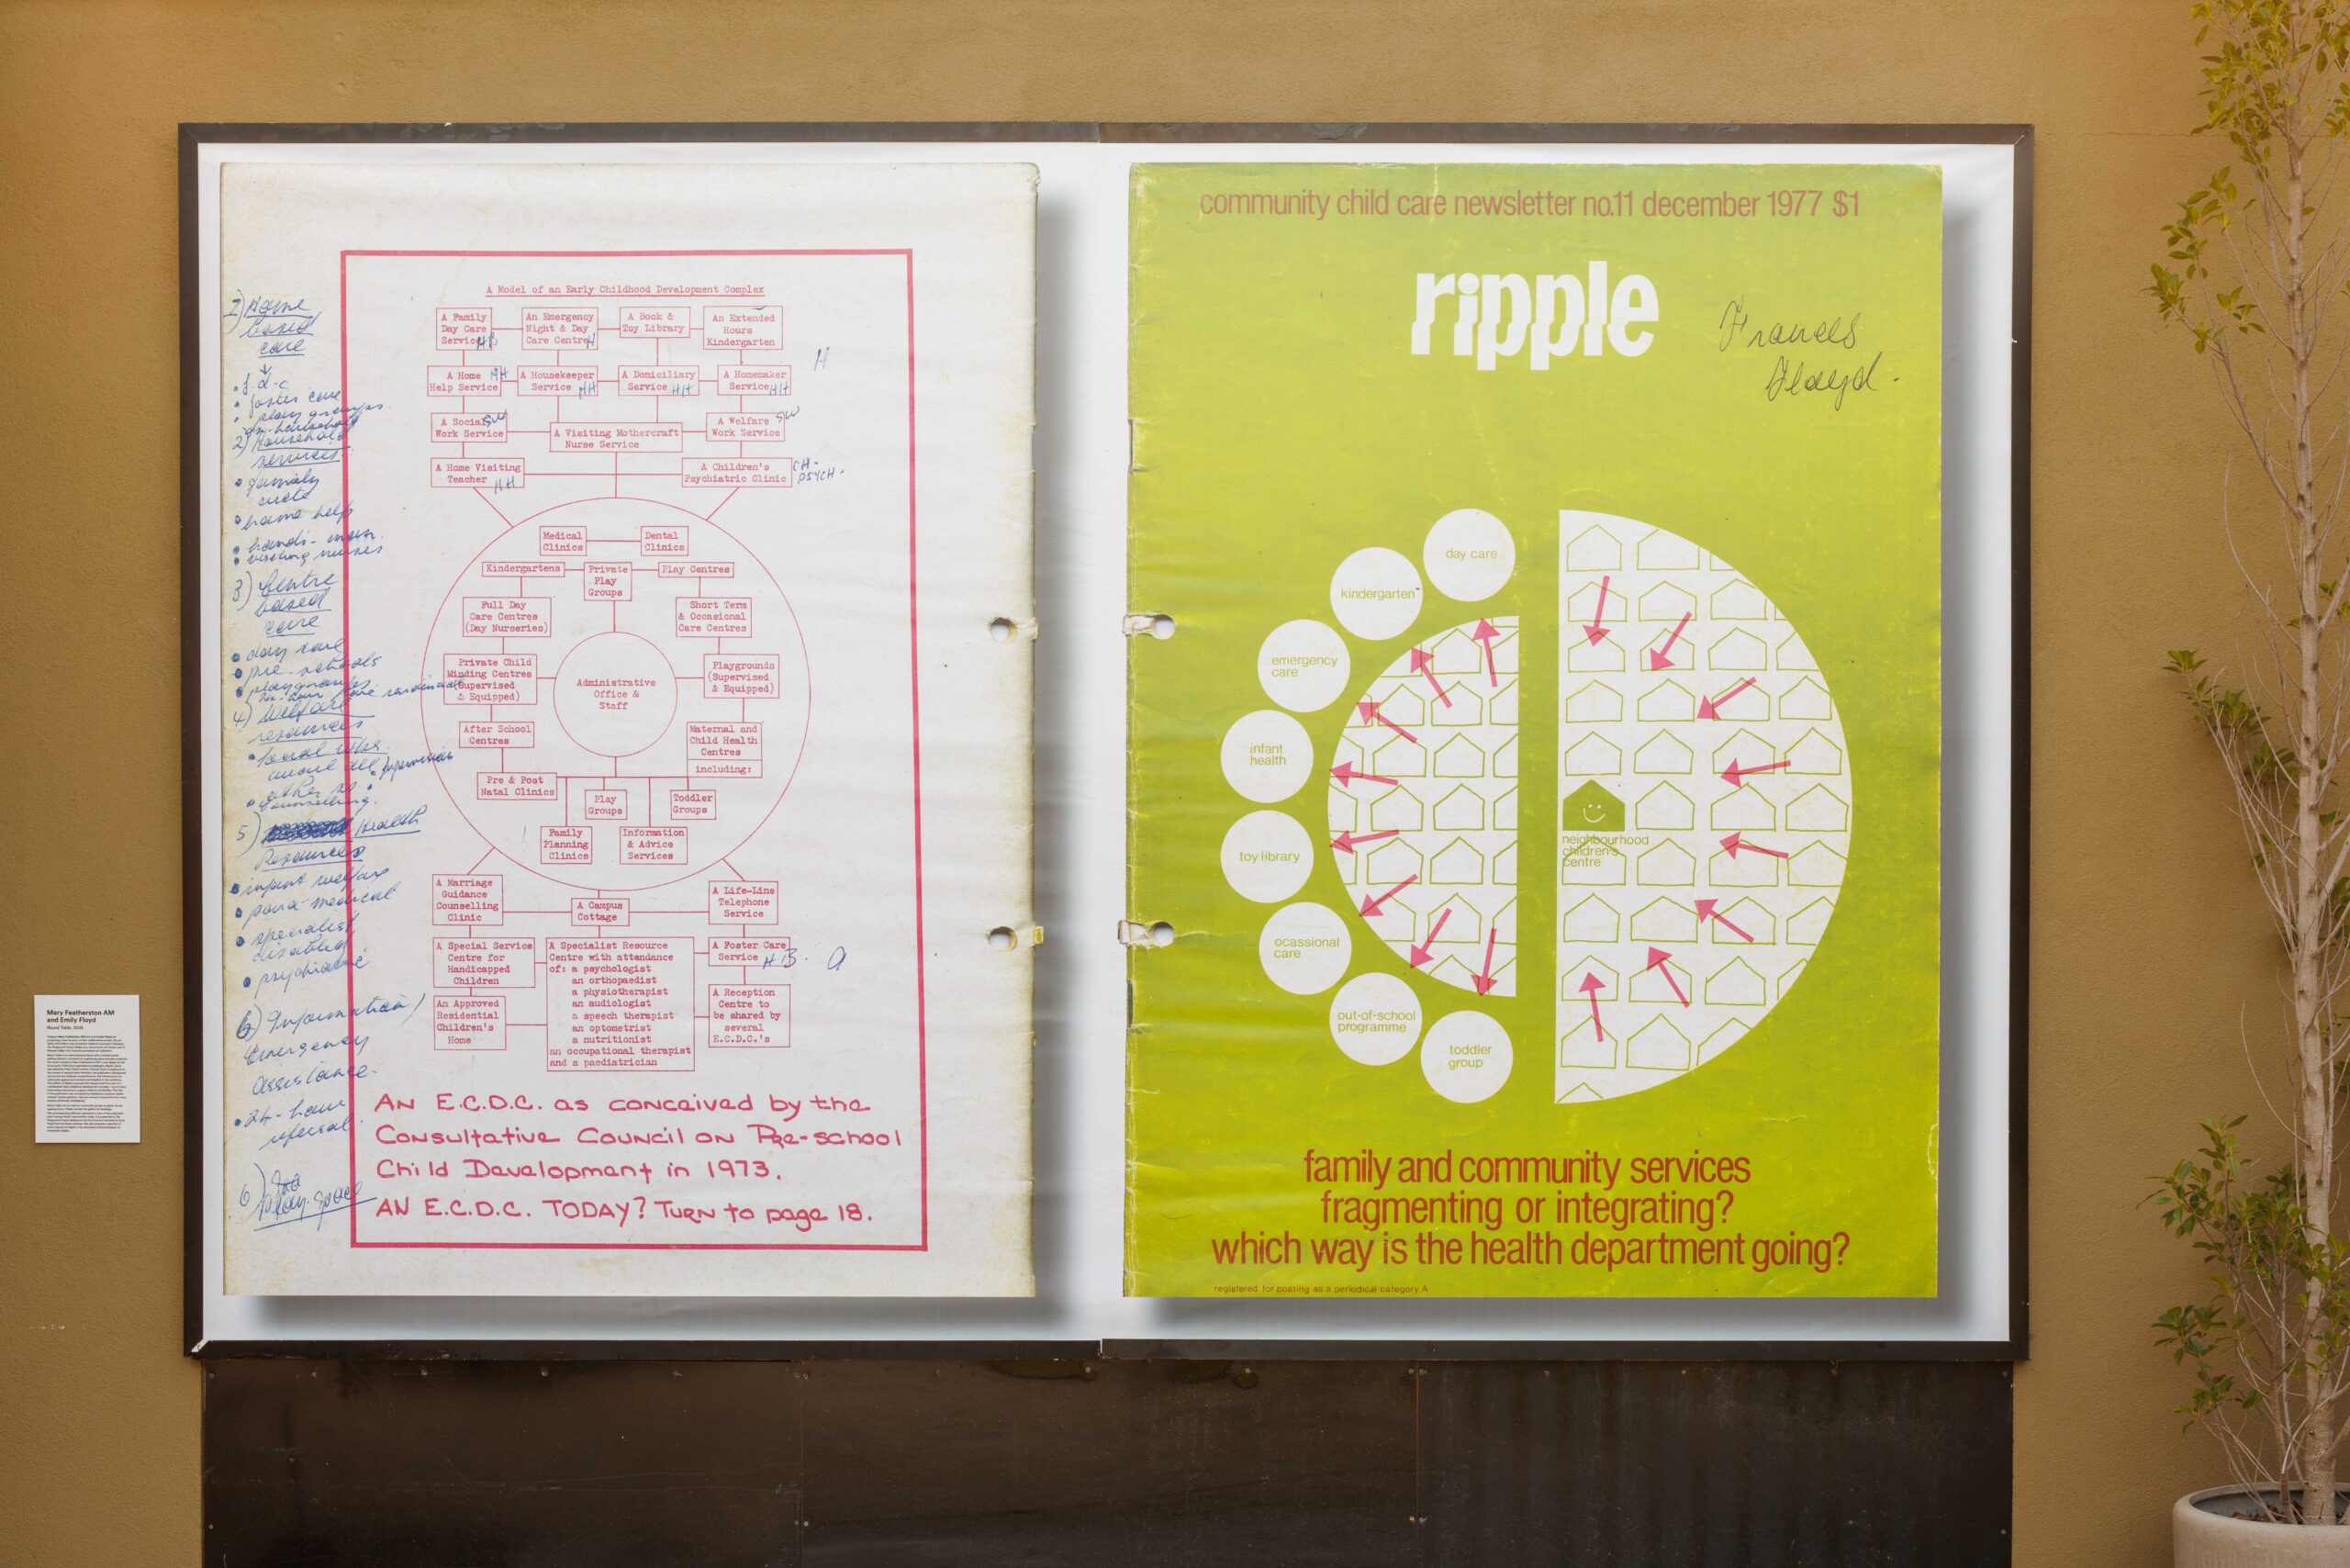 Mary Featherston AM
and Emily Floyd
Round Table, 2020
1) Home
based
care
• f.d.c
• foster care
• play groups
2) Household
services
• family
• home help
• handi-man
• visiting nurses
3) Centre
based
care
• day care
• pre-schools
• playgroups
4) Welfare
resources
counselling.
5) Health
Resources
• infant welfare
• para-medical
• specialist
disabled
• psychiatric
6) Information/
Emergency
assistance.
• 24-hour
referral.
6)
Play space
A Model of an Early Childhood Development Complex
A Family
Day Care
Service HB
An Emergency
Night & Day
Care Centre H
A Book &
Toy Library
An Extended
Hours
Kindergarten
H
A Home HH
Help Service
A Housekeeper
Service HH
A Domiciliary
Service HH
A Homemaker
Service HH
A Social SW
Work Service
A Visiting Mothercraft
Nurse Service
A Welfare SW
Work Service
A Home Visiting
Teacher HH
A Children's
Psychiatric Clinic
CH-
PSYCH-
Medical
Clinics
Dental
Clinics
Kindergartens
Private
Play
Groups
Play Centres
Full Day
Care Centres
(Day Nurseries)
Short Term
& Occasional
Care Centres
Private Child
Minding Centres
(Supervised
& Equipped)
Administrative
Office &
Staff
Playgrounds
(Supervised
& Equipped)
After School
Centres
Maternal and
Child Health
Centres
including:
Pre & Post
Natal Clinics
Play
Groups
Toddler
Groups
Family
Planning
Clinics
Information
& Advice
Services
A Marriage
Guidance
Counselling
Clinic
A Campus
Cottage
A Life-Line
Telephone
Service
A Special Service
Centre for
Handicapped
Children
A Specialist Resource
Centre with attendance
of: a psychologist
an orthopaedist
a physiotherapist
an audiologist
a speech therapist
an optometrist
a nutritionist
an occupational therapist
and a paediatrician
A Foster Care
Service HB.
An Approved
Residential
Children's
Home
A Reception
Centre to
be shared by
several
E.C.D.C.'s
AN E.C.D.C. as conceived by the
Consultative Council on Pre-school
Child Development in 1973.
AN E.C.D.C. TODAY? TURN to page 18.
community child care newsletter no.11 december 1977 $1
ripple
Frances
Floyd.
day care
kindergarten
emergency
care
infant
health
toy library
ocassional
care
out-of-school
programme
toddler
group
neighbourhood
children's
centre
family and community services
fragmenting or integrating?
which way is the health department going?
registered for posting as a periodical category A